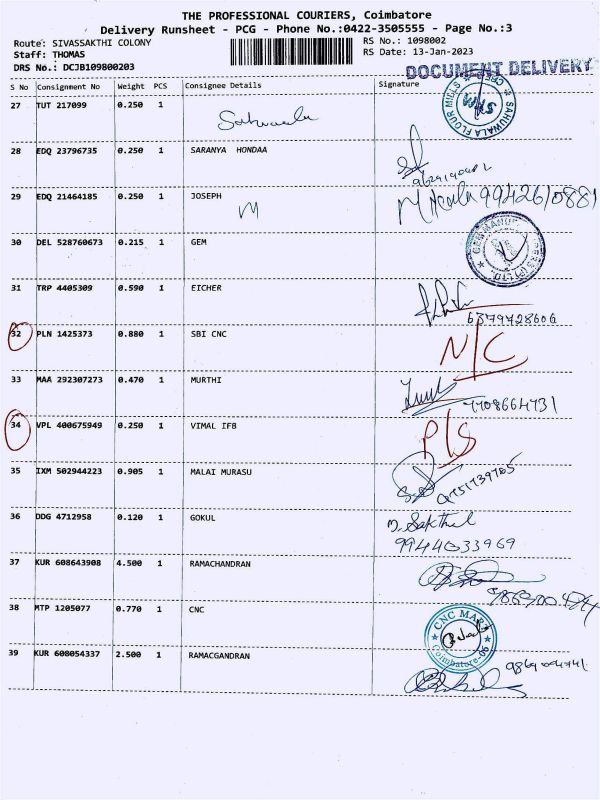 THE PROFESSIONAL COURIERS, Coimbatore
Delivery Runsheet - PCG - Phone No.:0422-3505555 - Page No.:3
Route: SIVASSAKTHI COLONY RS No.: 1098002
Staff: THOMAS RS Date: 13-Jan-2023
DRS No.: DCJB109800203
DOCUMENT DELIVERY
S No Consignment No Weight PCS Consignee Details Signature
27 TUT 217099 0.250 1
SAHUWALA FLOUR MILLS
28 EDQ 23796735 0.250 1 SARANYA HONDAA
29 EDQ 21464185 0.250 1 JOSEPH
9942610881
30 DEL 528760673 0.215 1 GEM
31 TRP 4405309 0.590 1 EICHER
6379728606
32 PLN 1425373 0.880 1 SBI CNC N/C
33 MAA 292307273 0.470 1 MURTHI
7708664731
34 VPL 400675949 0.250 1 VIMAL IFB P/S
35 IXM 502944223 0.905 1 MALAI MURASU
9751739705
36 DDG 4712958 0.120 1 GOKUL
9944033969
37 KUR 608643908 4.500 1 RAMACHANDRAN
38 MTP 1205077 0.770 1 CNC
CNC
Coimbatore
39 KUR 608054337 2.500 1 RAMACGANDRAN